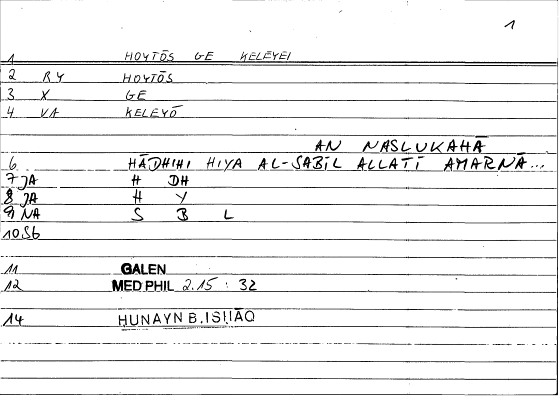 1
1 HOYTŌS GE KELEYEI
2 RY HOYTŌS
3 X GE
4 VA KELEYŌ
AN NASLUKAHĀ
6 HĀDHIHI HIYA AL-SABĪL ALLATĪ AMARNĀ...
7 JA H DH
8 JA H Y
9 NA S B L
10 Sb
11 GALEN
12 MED PHIL 2.15 : 32
14 ḤUNAYN B. ISḤĀQ